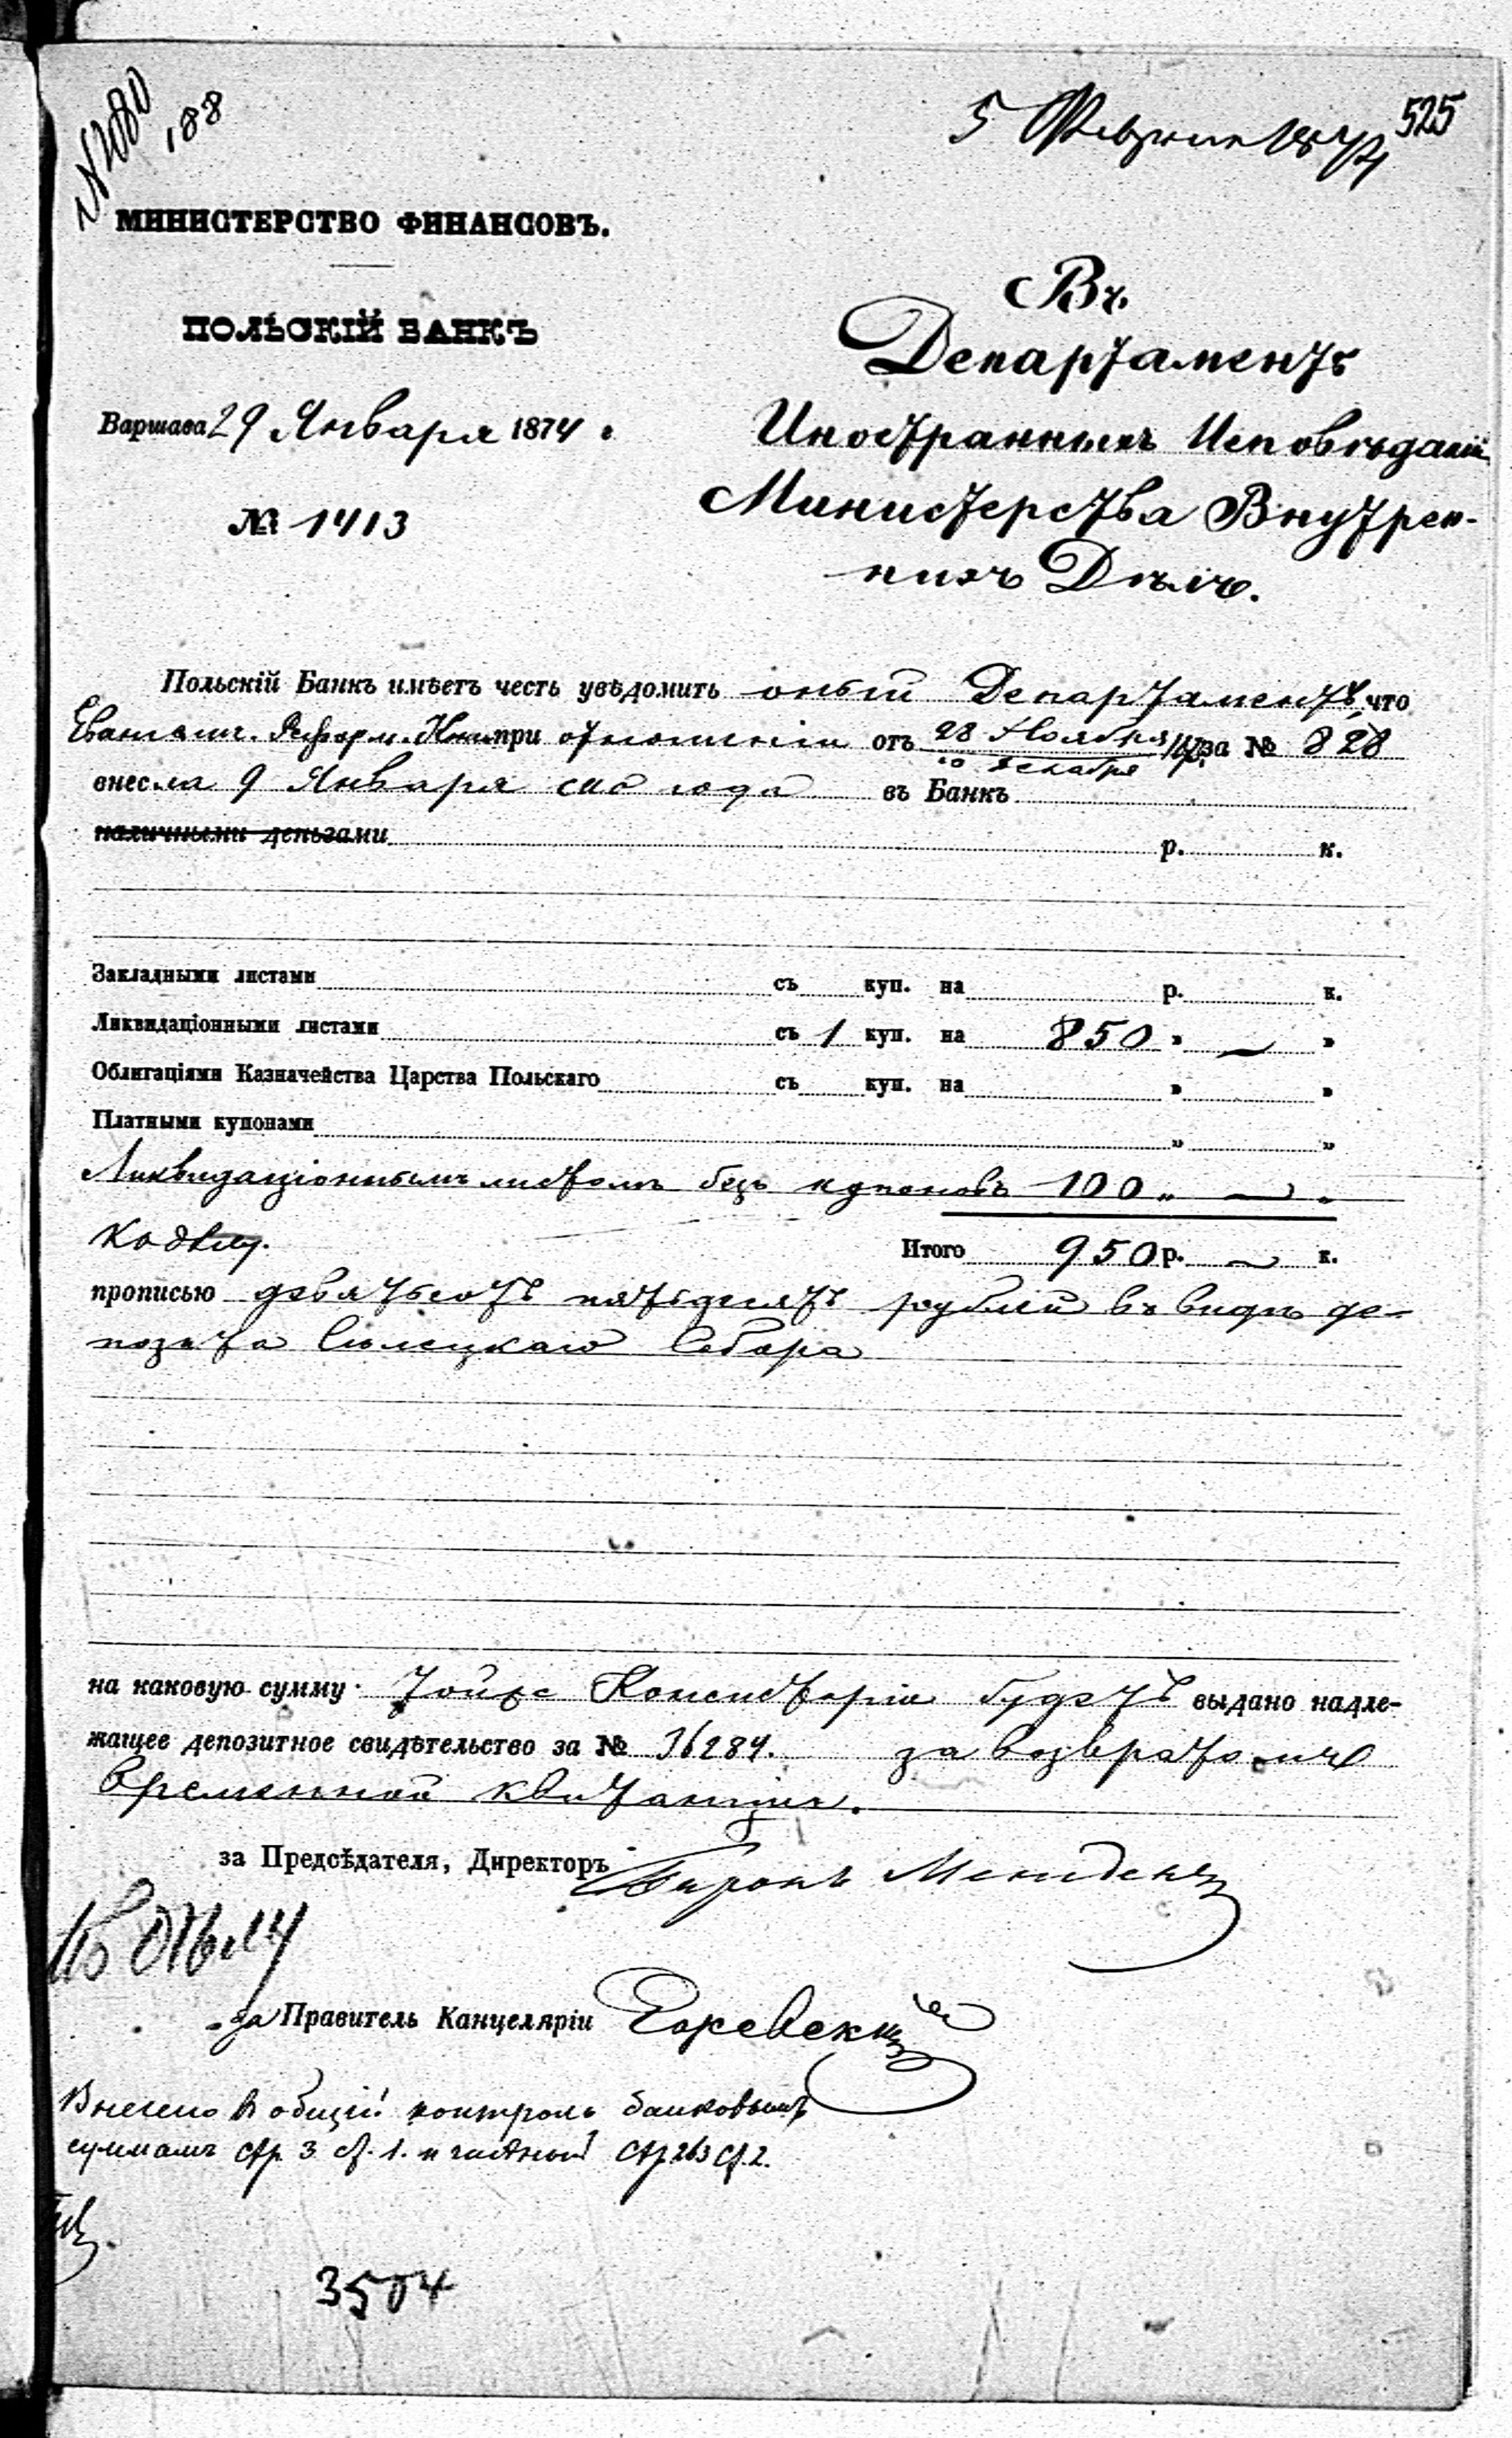 №1080
188
5 Февраля 1874
525
МИНИСТЕРСТВО ФИНАНСОВЪ.
ПОЛЬСКІЙ БАНКЪ
Варшава 29 Января 1874 г.
№ 1413
Въ
Департаментъ
Иностранныхъ Исповѣданій
Министерства Внутрен-
нихъ Дѣлъ.
Польскій Банкъ имѣетъ честь увѣдомить оный Департаментъ, что
Евангелич. Реформ. при отношеніи отъ 28 Ноября за № 828
10 Декабря
внесла 9 Января сего года въ Банкъ
наличными деньгами р. к.
Закладными листами съ куп. на р. к.
Ликвидаціонными листами съ 1 куп. на 850 „ — „
Облигаціями Казначейства Царства Польскаго съ куп. на „ „
Платными купонами „ „
Ликвидаціоннымъ листомъ безъ купоновъ 100 „ — „
Итого 950 р. — к.
прописью девятьсотъ пятьдесятъ рублей въ видѣ де-
позита Сѣлецкаго Собора
на каковую сумму той же Консисторіи будетъ выдано надле-
жащее депозитное свидѣтельство за № 36284. за возвратомъ
временной квитанціи.
за Предсѣдателя, Директоръ Баронъ Менгденъ
за Правитель Канцеляріи
Внесено въ общій контроль банковымъ
суммамъ стр. 3 ст. 1. и частной стр. 263 ст. 2.
3504